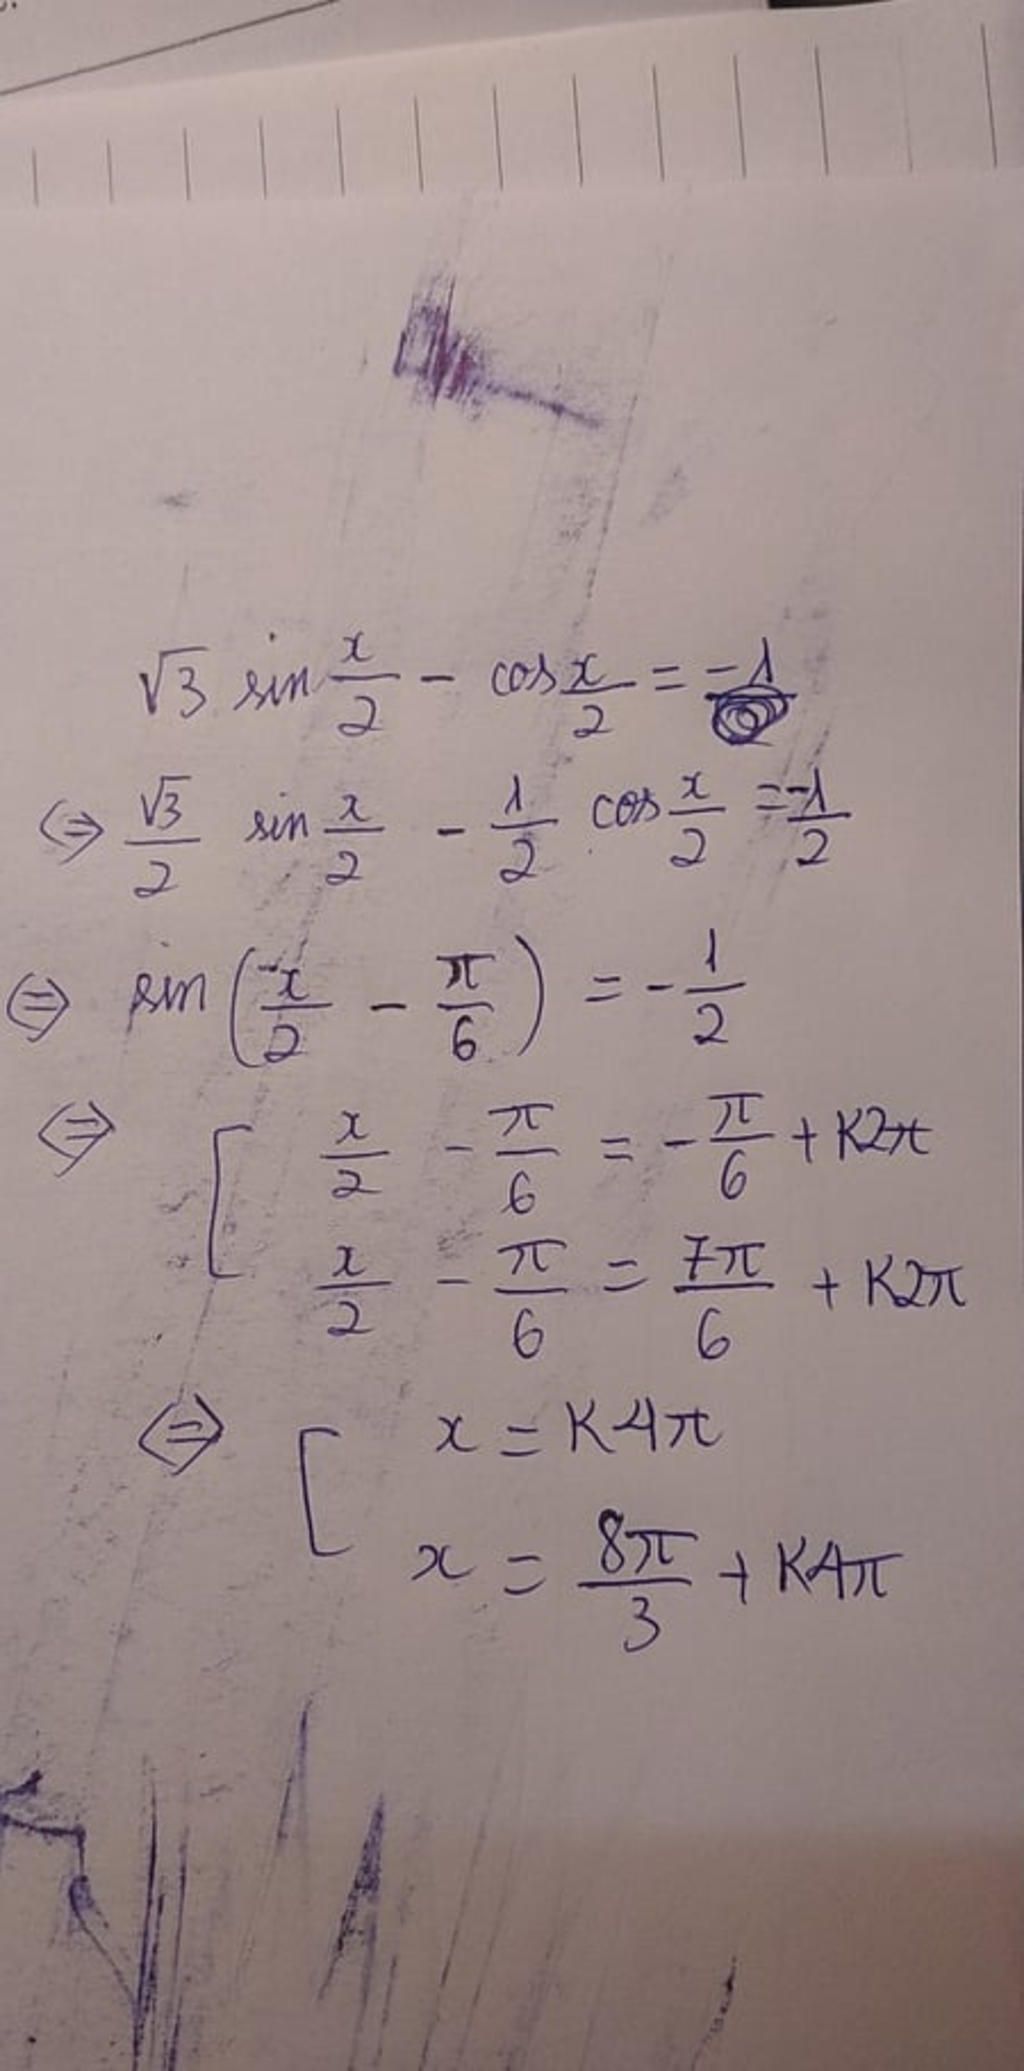 √3 sin x/2 - cos x/2 = -1
⇔ √3/2 sin x/2 - 1/2 cos x/2 = -1/2
⇔ sin(x/2 - π/6) = -1/2
⇔ [ x/2 - π/6 = -π/6 + K2π
x/2 - π/6 = 7π/6 + K2π
⇔ [ x = K4π
x = 8π/3 + K4π